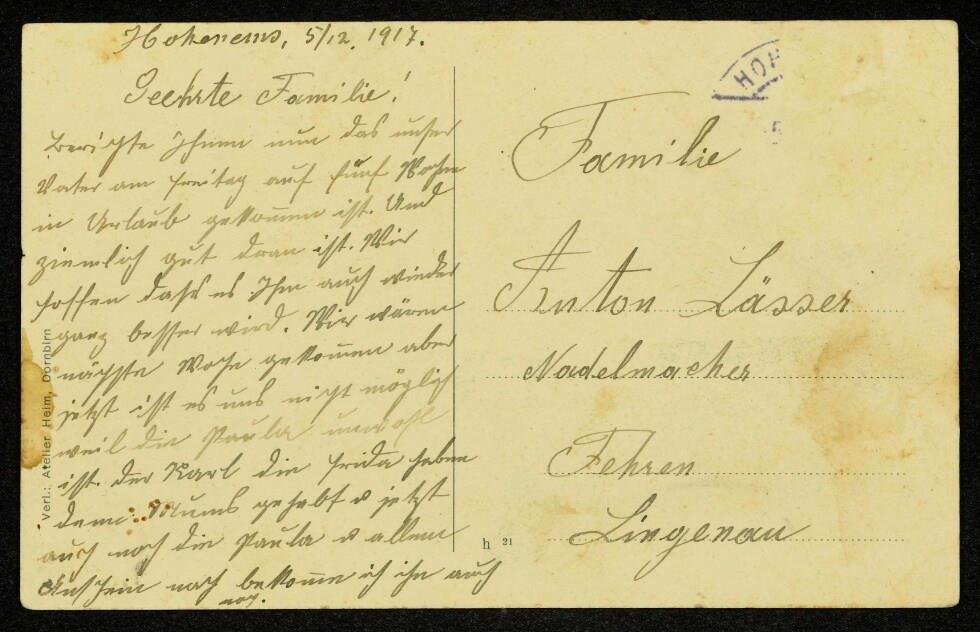 Hohenems, 5/12. 1917.
Geehrte Familie!
Berichte Ihnen nun das unser
Vater am Freitag auf fünf Wochen
in Urlaub gekommen ist. Und
ziemlich gut dran ist. Wir
hoffen dass es Ihm auch wieder
ganz besser wird. Wir wären
nächste Woche gekommen aber
jetzt ist es uns nicht möglich
weil die Paula unwohl
ist. der Karl die Frida haben
den Mums gehabt u jetzt
auch noch die Paula u allem
Anschein nach bekomme ich ihn auch
noch.
Verl.: Atelier Heim, Dornbirn
h 21
HOH
Familie
Anton Lässer
Nadelmacher
Fehren
Lingenau